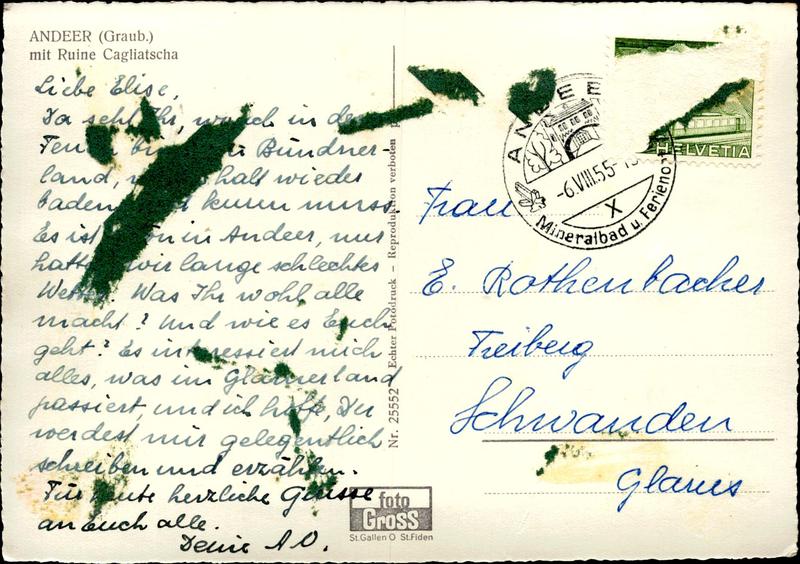 ANDEER (Graub.)
mit Ruine Cagliatscha
Liebe Elise,
Da seht Ihr, wo ich in den
Bündner-
land, halt wieder
baden kuren muss.
Es ist in Andeer, nur
hatten wir lange schlechtes
Wetter. Was Ihr wohl alle
macht? Und wie es Euch
geht? Es interessiert mich
alles, was im Glarnerland
passiert, und ich hoffe, Du
werdest mir gelegentlich
schreiben und erzählen.
Für heute herzliche Grüsse
an Euch alle.
Deine A.O.
Nr. 25552 Echter Fotodruck – Reproduktion verboten
foto
Gross
St.Gallen O St.Fiden
HELVETIA
ANDEE
-6.VIII.55-
X
Mineralbad u. Ferieno
Frau
E. Rothenbacher
Freiberg
Schwanden
Glarus